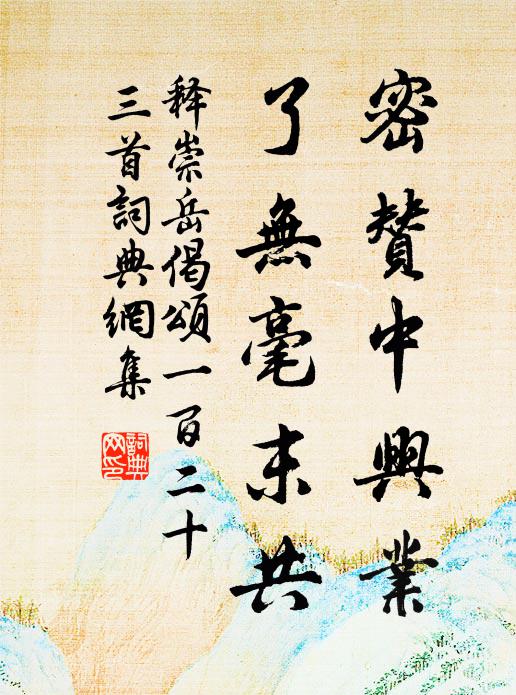 密賛中興業
了無毫末共
释崇岳偈頌一百二十
三首詞典網集
詞典
网印